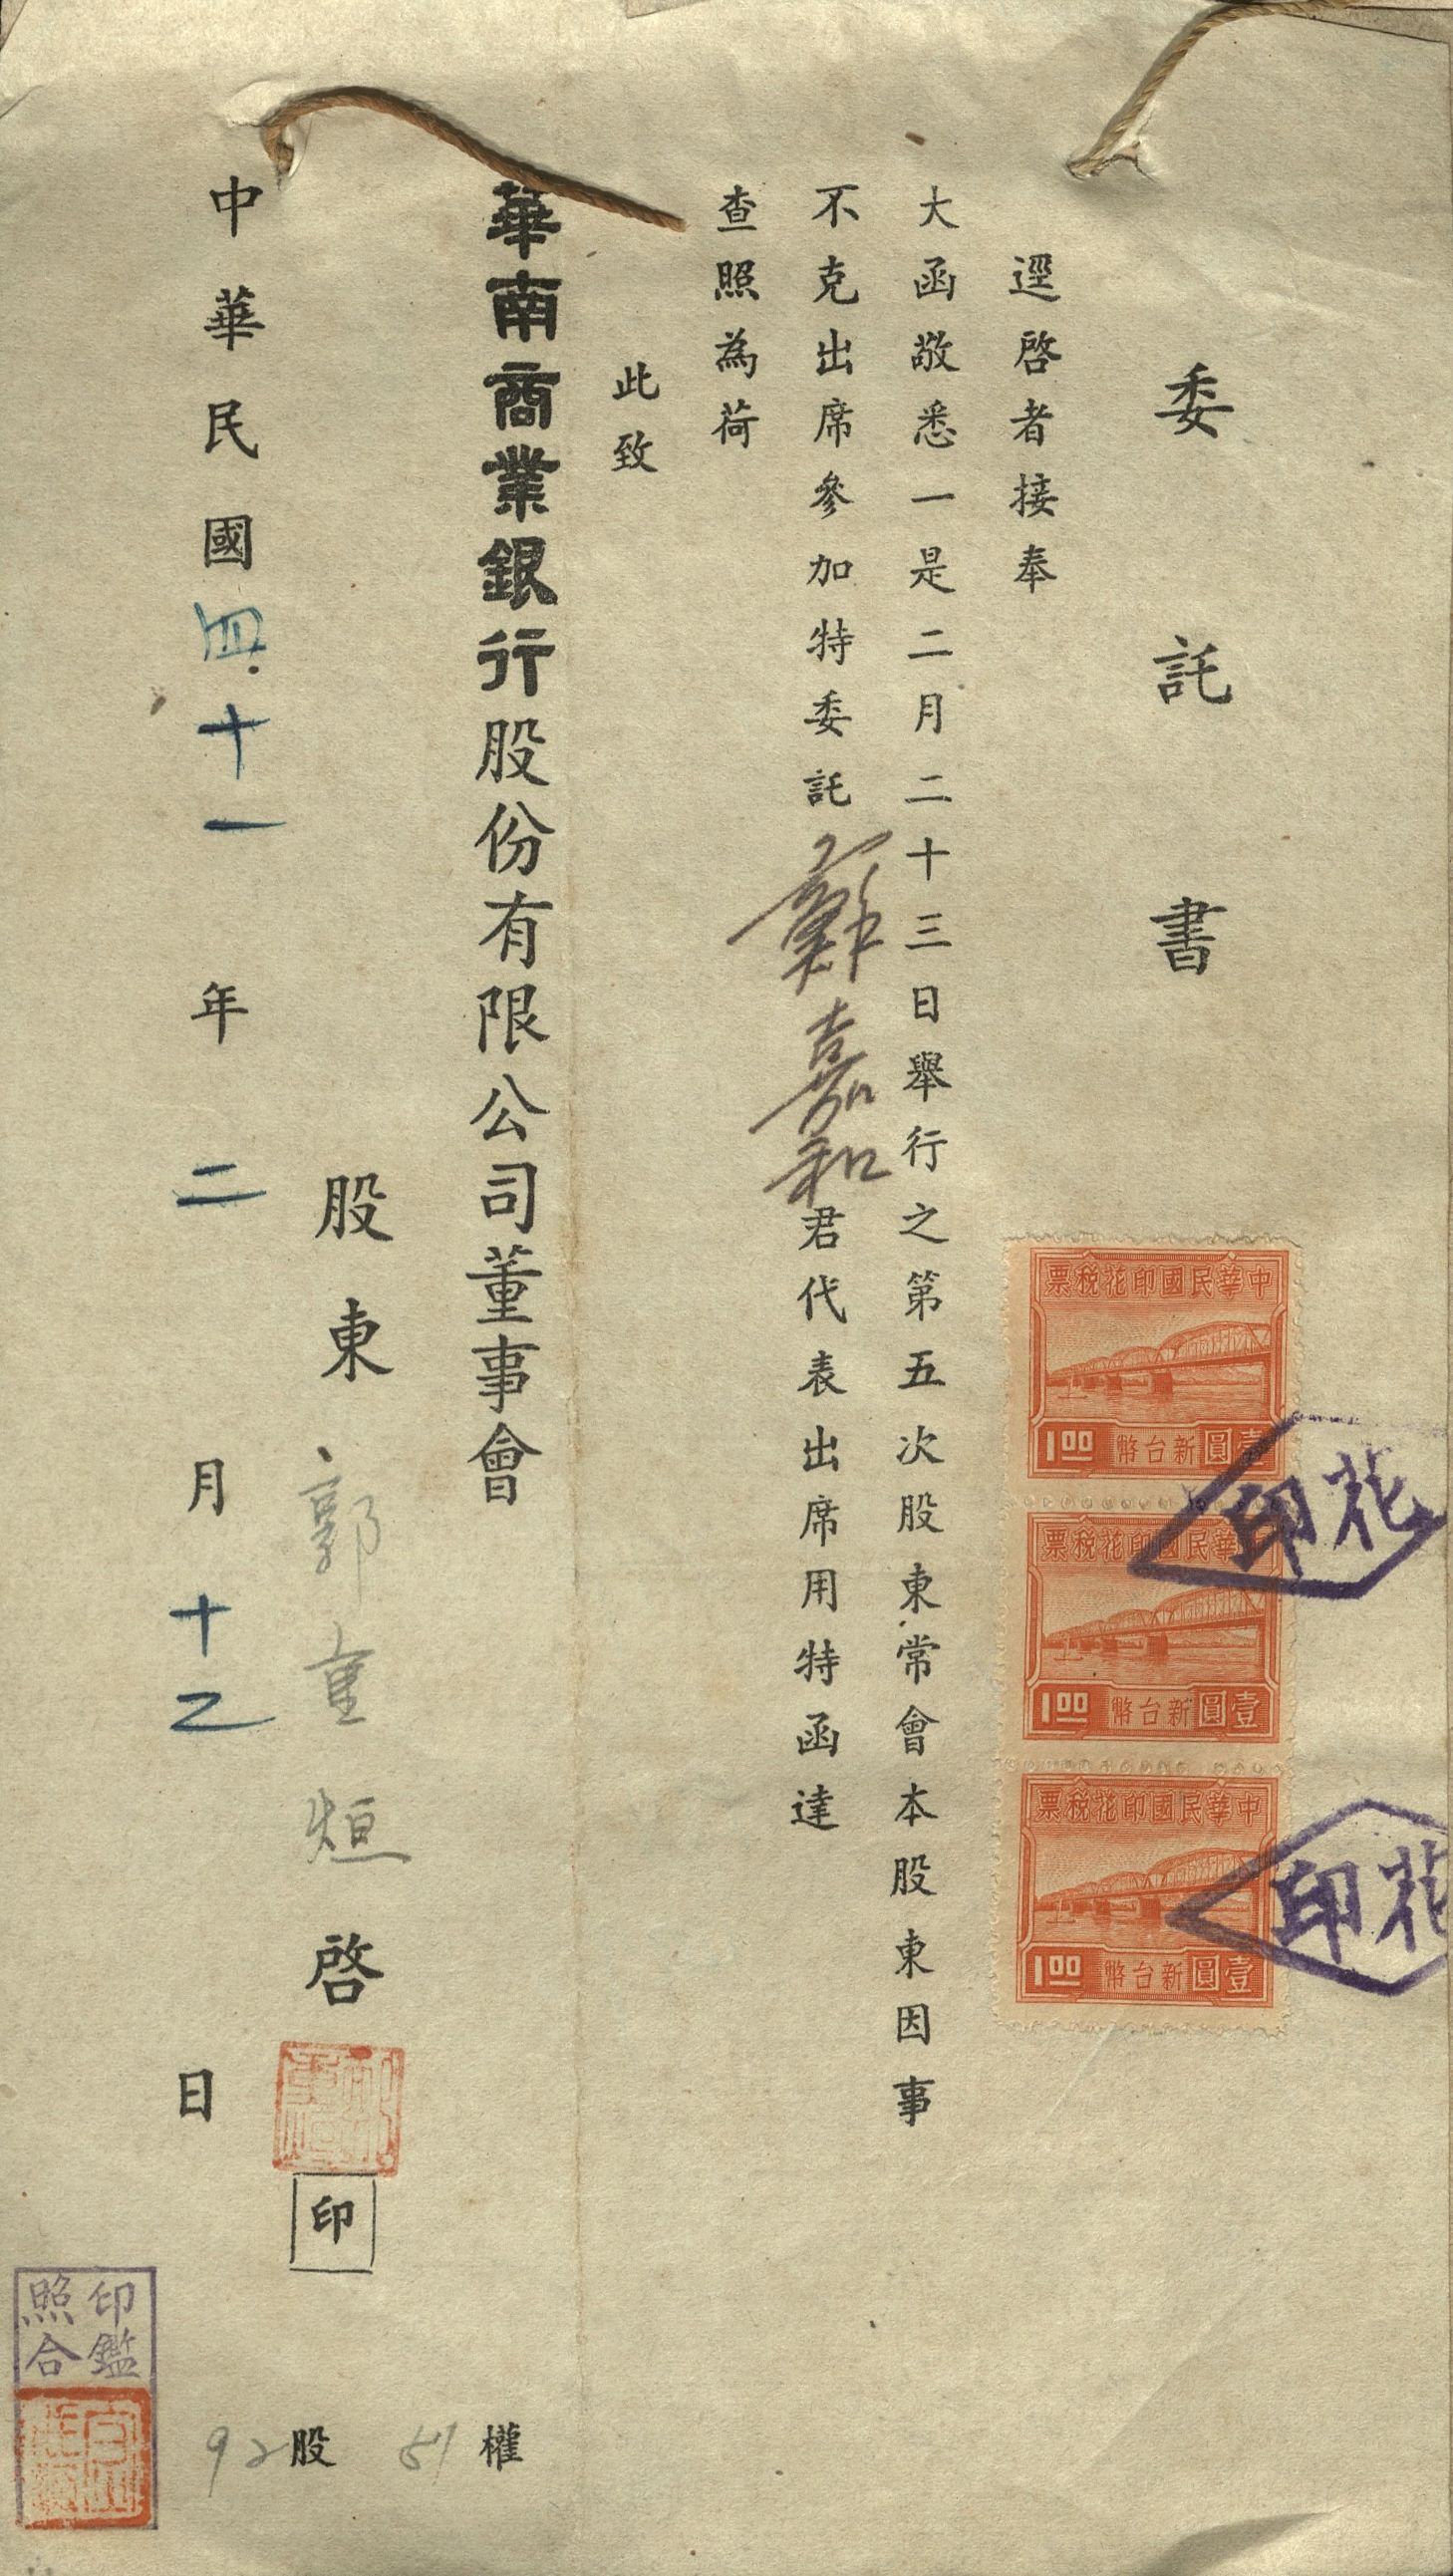 委託書
逕啓者接奉
大函敬悉一是二月二十三日舉行之第五次股東常會本股東因事
不克出席參加特委託鄭嘉和君代表出席用特函達
查照為荷
此致
華南商業銀行股份有限公司董事會
股東郭重烜啓
印
中華民國四十一年二月十乙日
92股 51權
中華民國印花稅票
新台幣壹圓
1.00
中華民國印花稅票
新台幣壹圓
1.00
中華民國印花稅票
新台幣壹圓
1.00
花印
花印
印鑑照合